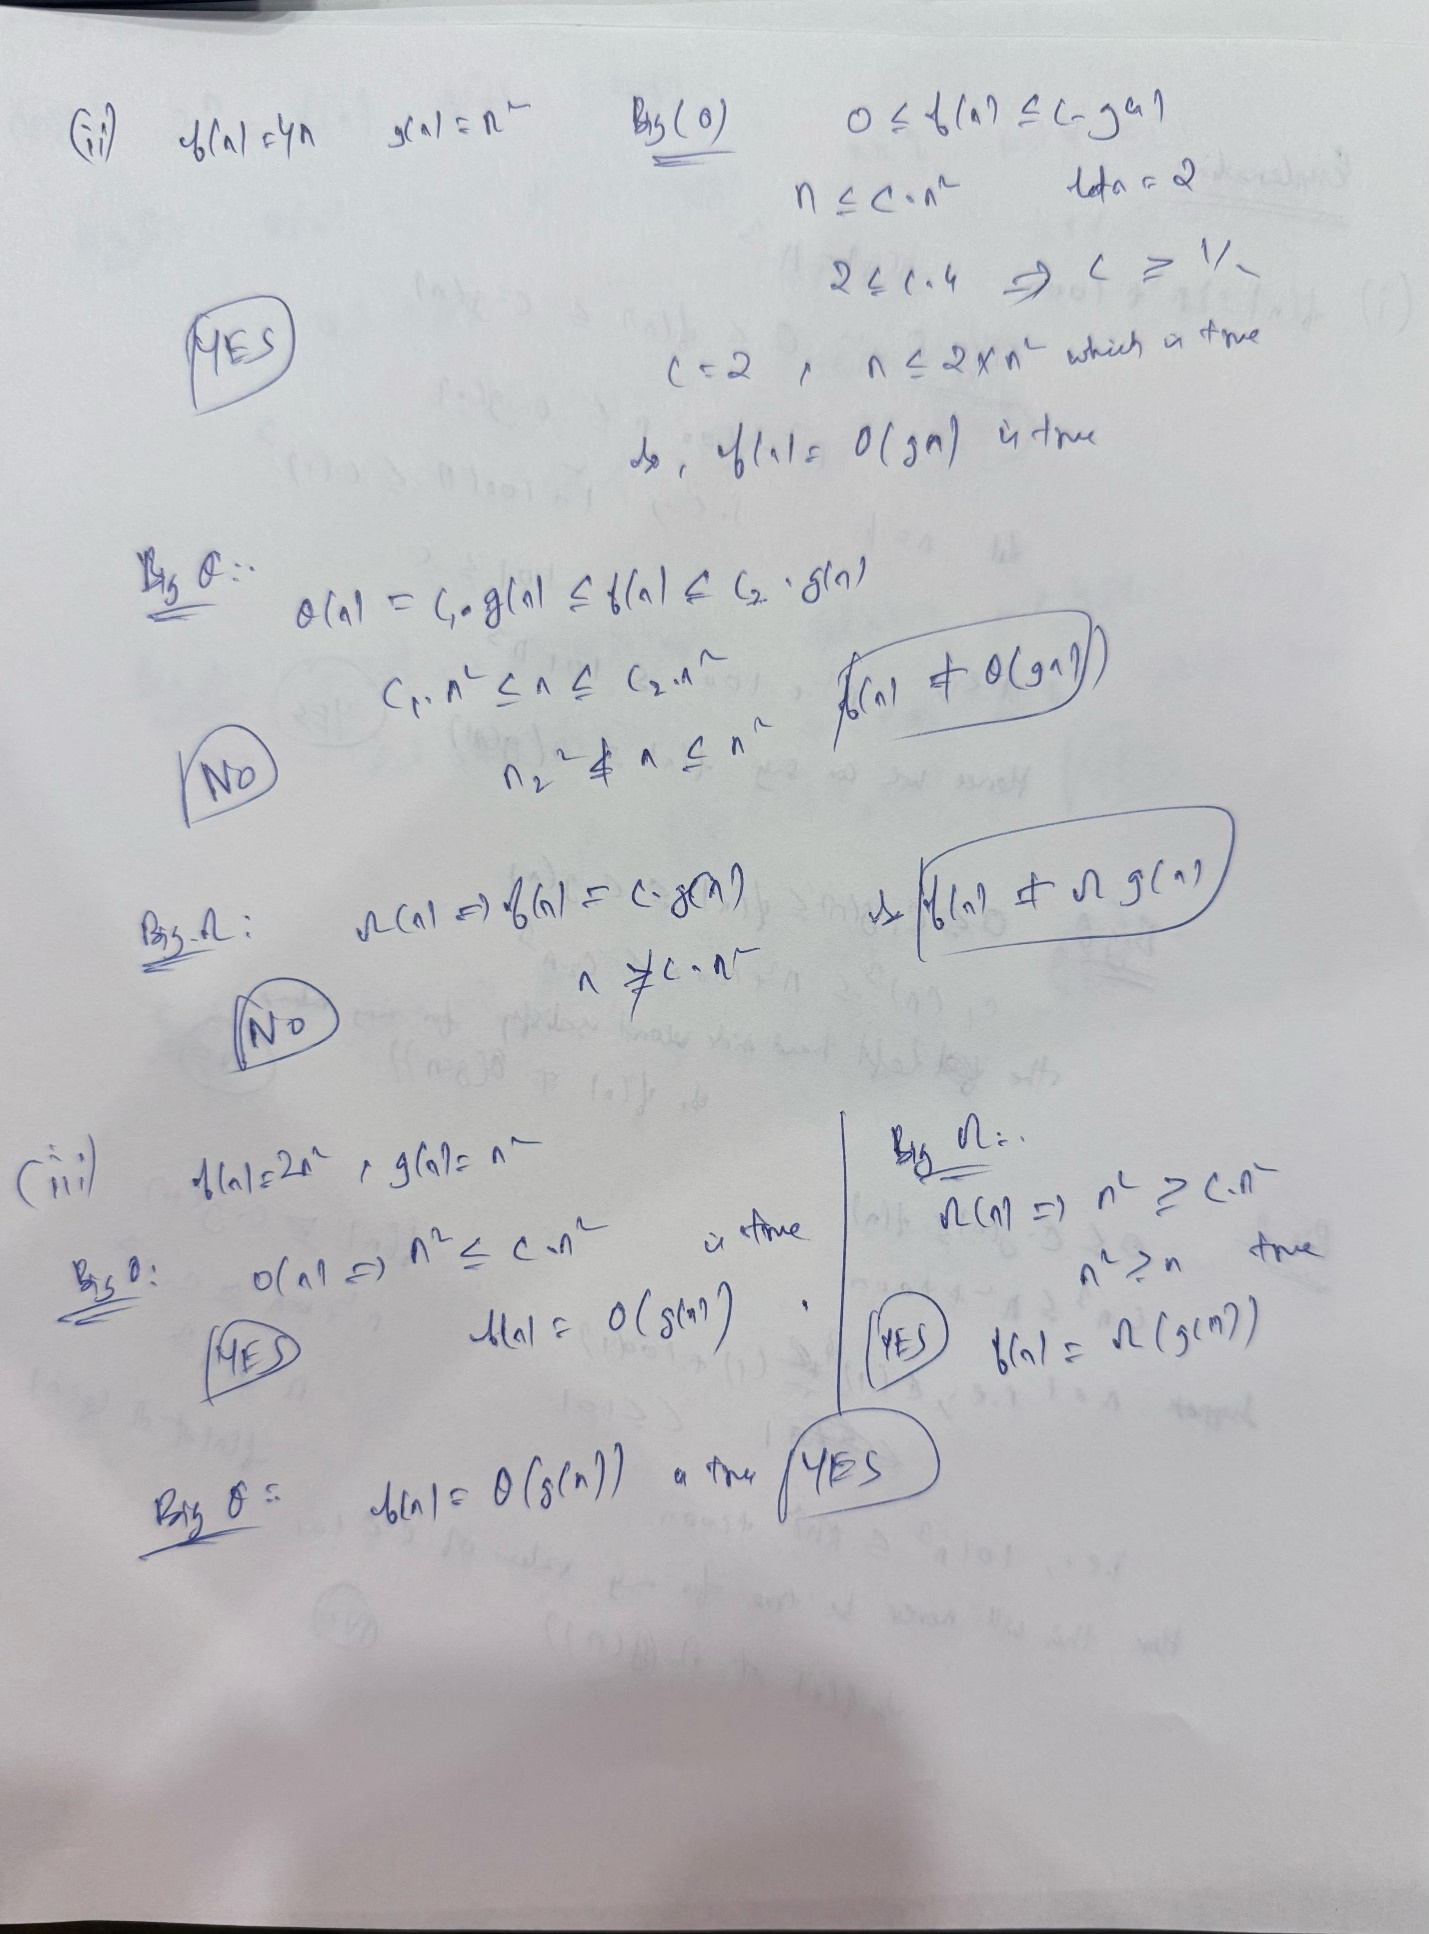 (ii) f(n) = 4n g(n) = n² Big (O) 0 ≤ f(n) ≤ c.g(n)
n ≤ c.n² let n = 2
2 ≤ c.4 ⇒ c ≥ 1/2
YES
c = 2 , n ≤ 2×n² which is true
So, f(n) = O(gn) is true
Big θ:
θ(n) = c₁.g(n) ≤ f(n) ≤ c₂.g(n)
c₁.n² ≤ n ≤ c₂.n² f(n) ≠ θ(g(n))
NO
n₂² ≰ n ≤ n²
Big Ω: Ω(n) ⇒ f(n) = c.g(n) So f(n) ≠ Ω g(n)
n ≱ c.n²
NO
(iii) f(n) = 2n² , g(n) = n²
Big O: O(n) ⇒ n² ≤ c.n² is true
YES f(n) = O(g(n)).
Big Ω:
Ω(n) ⇒ n² ≥ c.n²
n² ≥ n true
YES f(n) = Ω(g(n))
Big θ: f(n) = θ(g(n)) is true YES